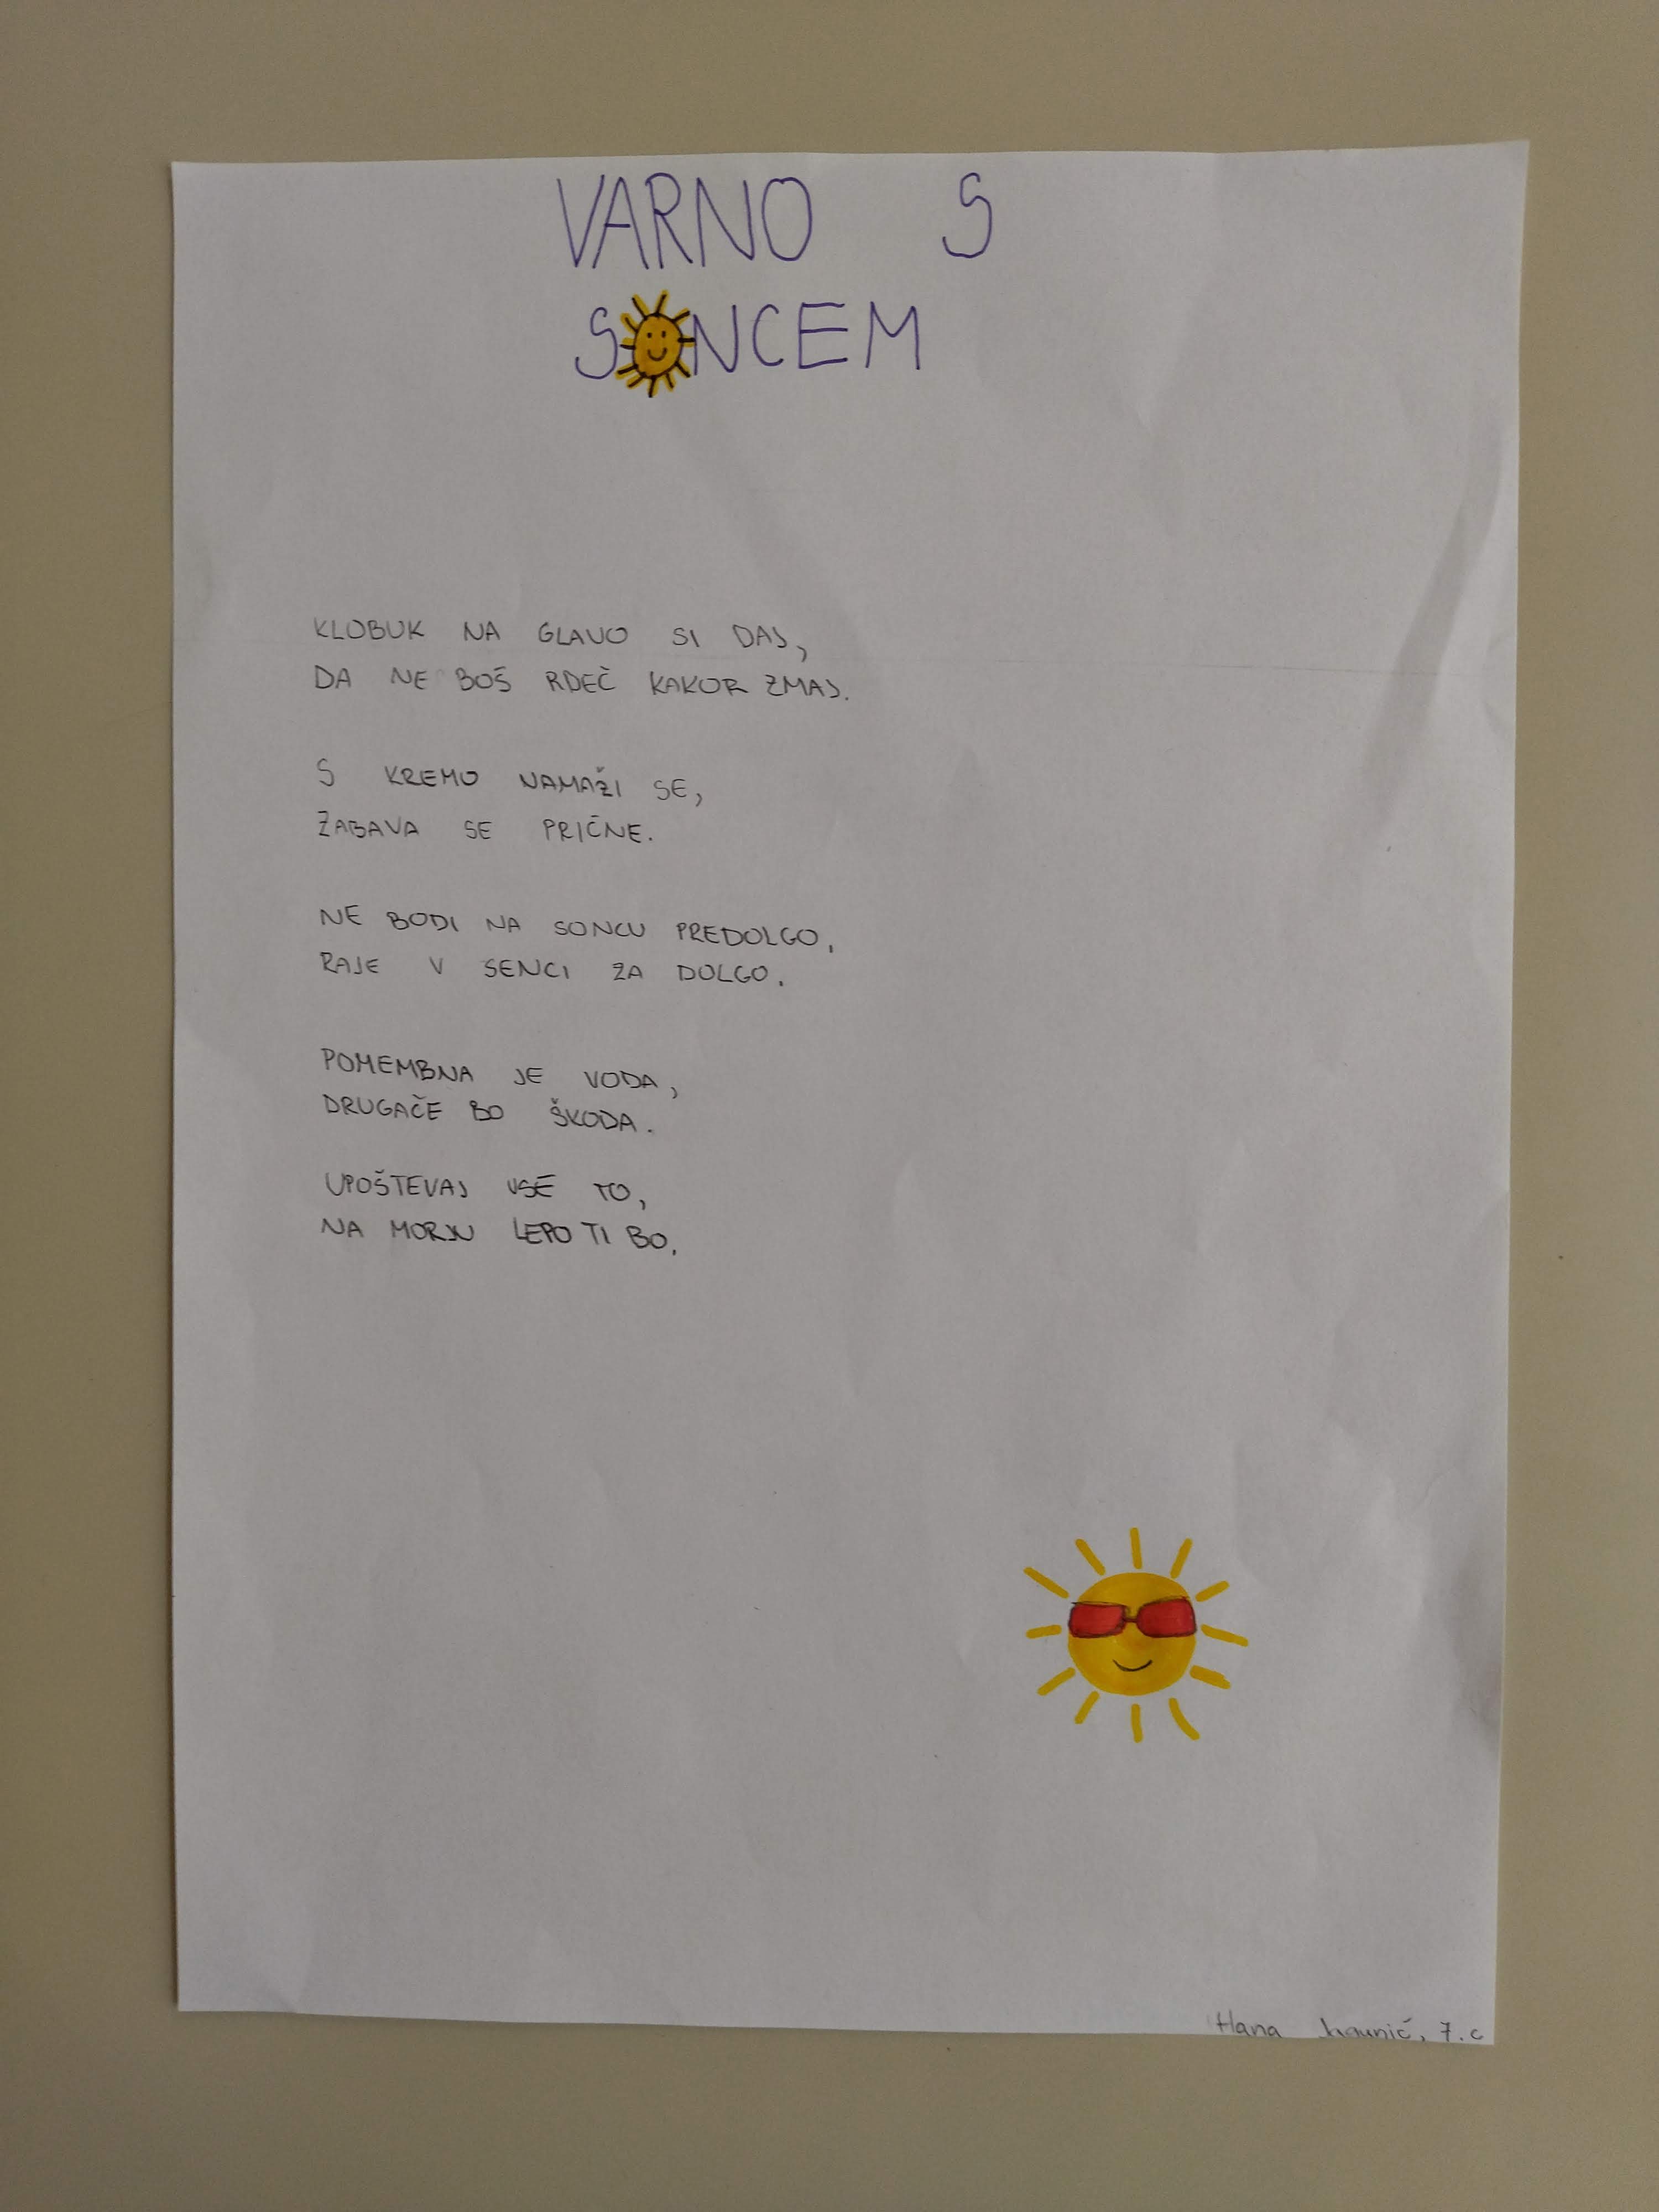 VARNO S
SONCEM
KLOBUK NA GLAVO SI DAJ,
DA NE BOŠ RDEČ KAKOR ZMAJ.
S KREMO NAMAŽI SE,
ZABAVA SE PRIČNE.
NE BODI NA SONCU PREDOLGO,
RAJE V SENCI ZA DOLGO.
POMEMBNA JE VODA,
DRUGAČE BO ŠKODA.
UPOŠTEVAJ VSE TO,
NA MORJU LEPO TI BO.
Hana 7.c